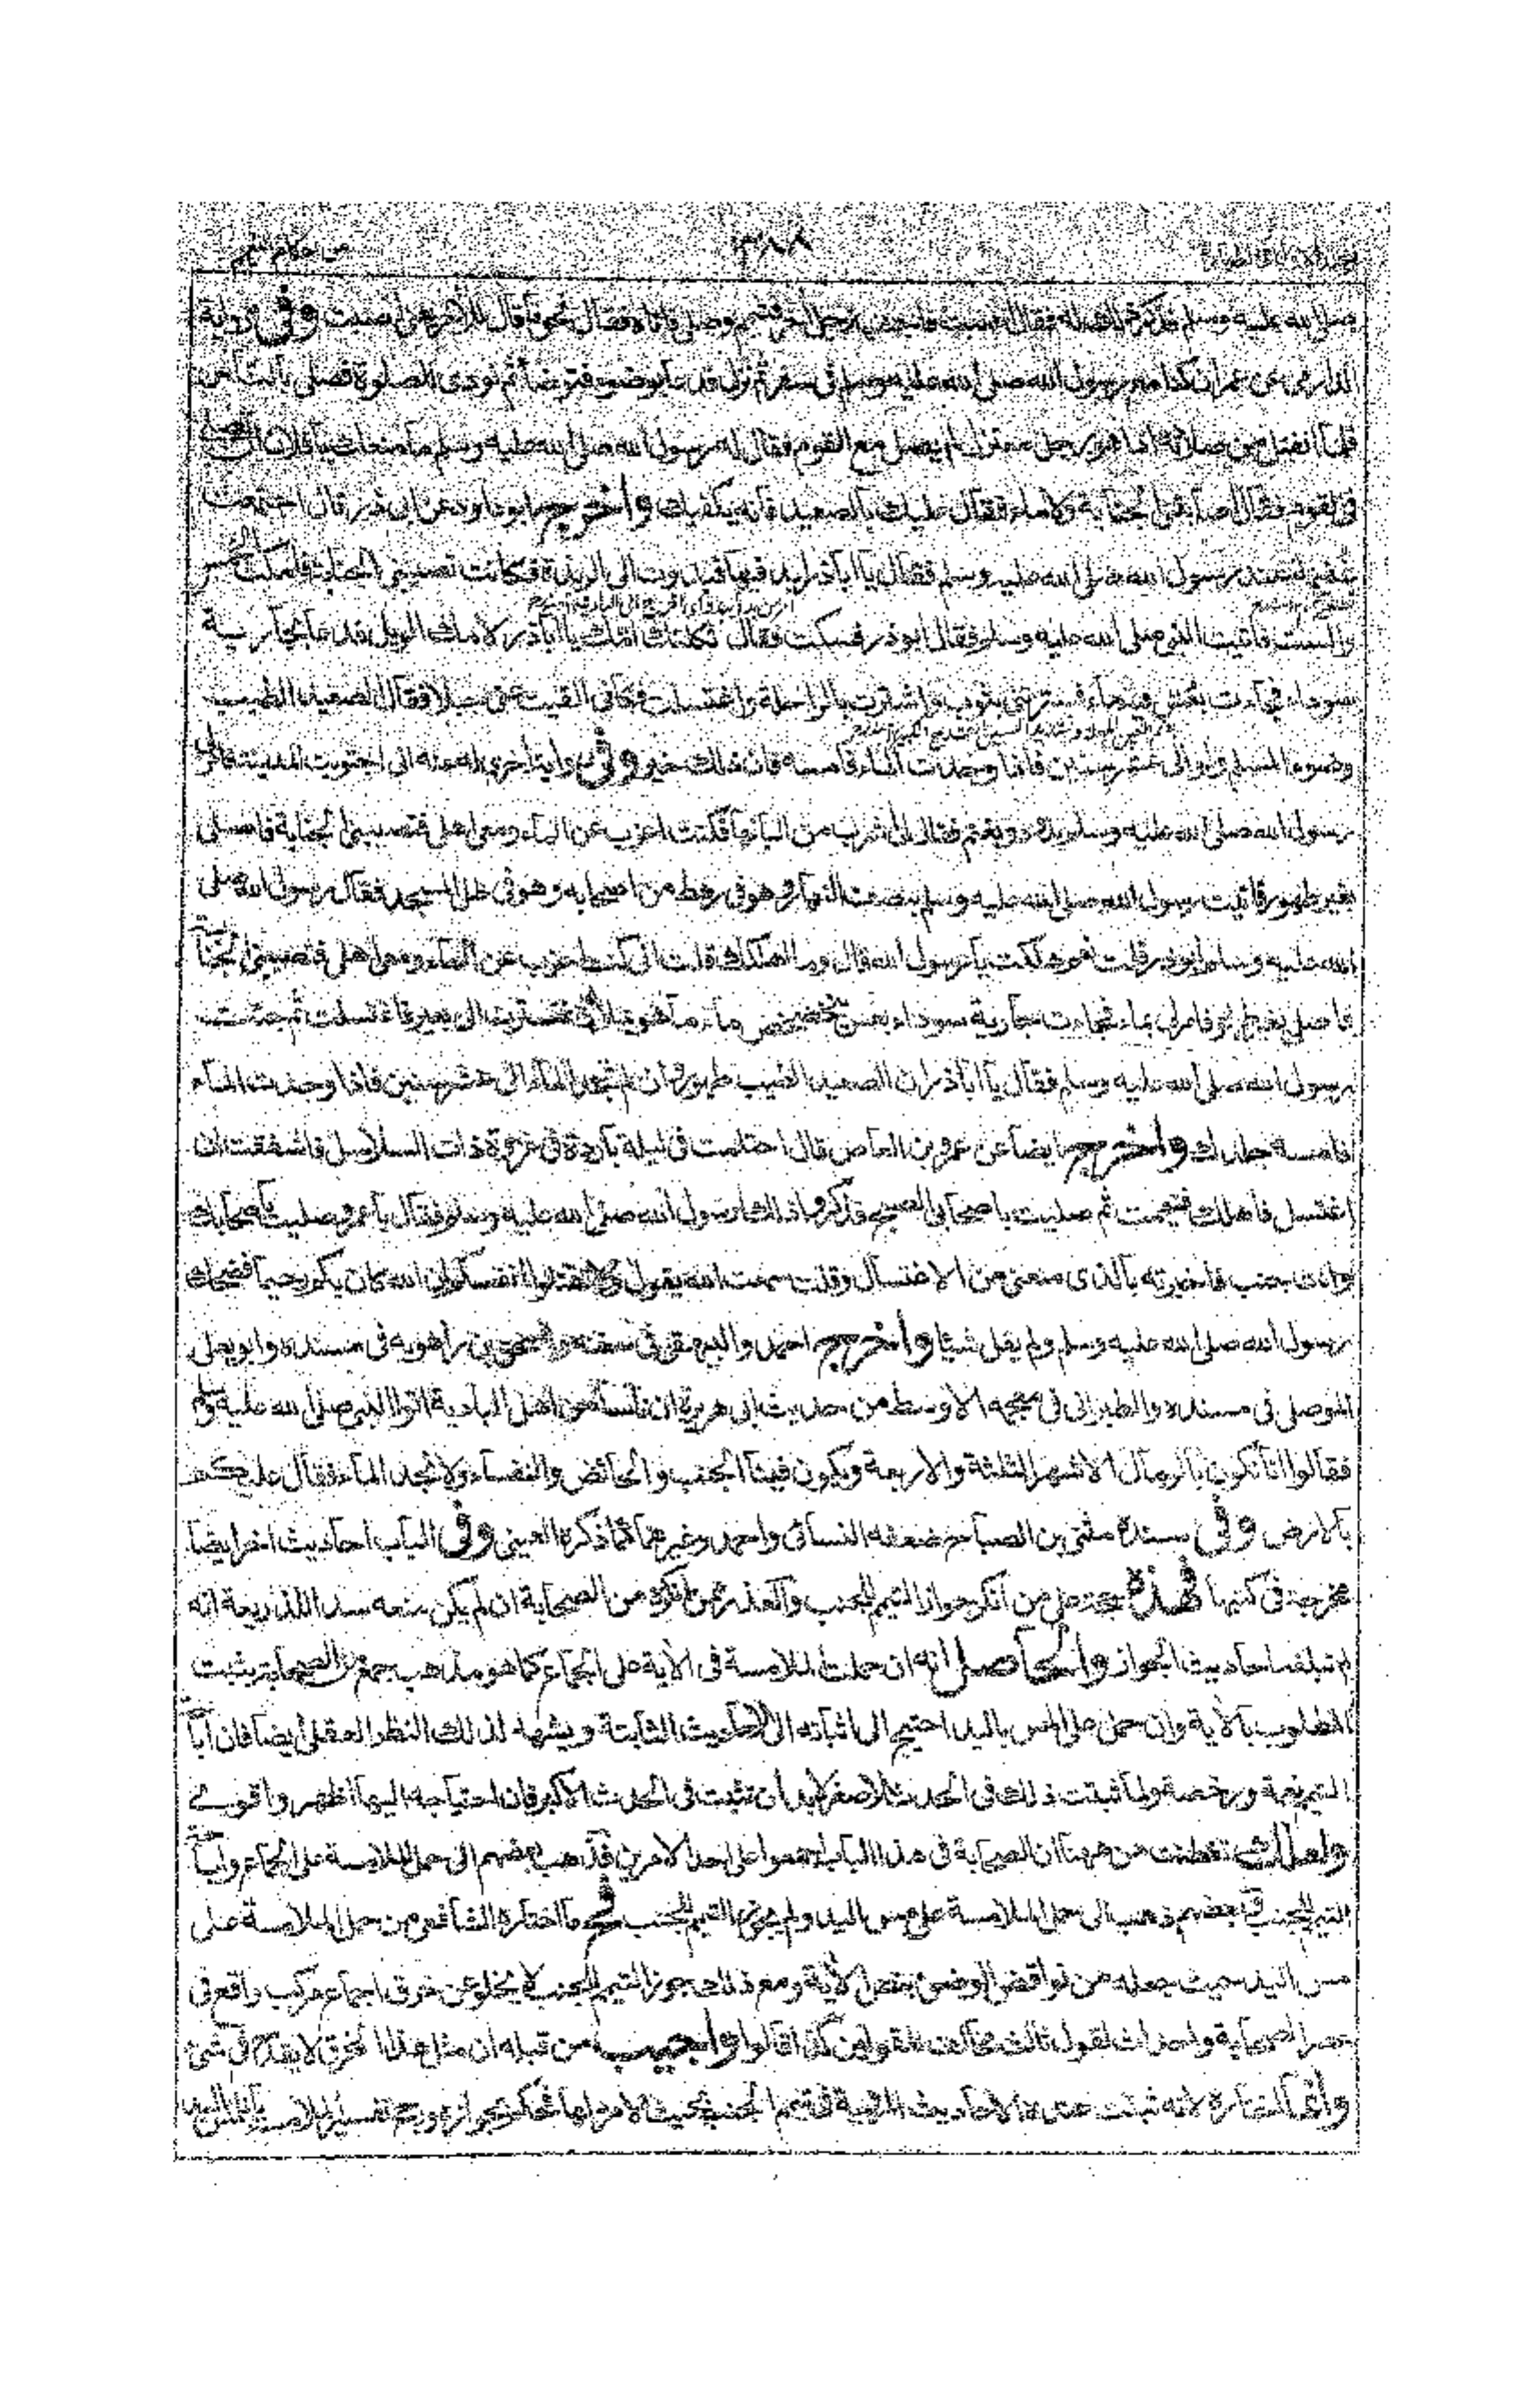 ٤٨٨
صلى الله عليه وسلم فذكر ذلك له فقال أصبت فاجنب رجل آخر فتيمم وصلى فأتاه فقال نحو ما قال للآخر يعني أصبت وفي رواية
الدارمي عن عمران كنا مع رسول الله صلى الله عليه وسلم في سفر ثم نزل فدعا بوضوء فتوضأ ثم نودي بالصلوة فصلى بالناس
فلما انفتل من صلاته اذا هو برجل معتزل لم يصل مع القوم فقال له رسول الله صلى الله عليه وسلم ما منعك يا فلان ان تصلي
في القوم فقال اصابتني الجنابة ولا ماء فقال عليك بالصعيد فانه يكفيك وأخرج ابو داود عن ابي ذر قال اجتمعت
غنيمة عند رسول الله صلى الله عليه وسلم فقال يا ابا ذر ابد فيها فبدوت الى الربذة فكانت تصيبني الجنابة فامكث الخمس
والست فاتيت النبي صلى الله عليه وسلم فقال ابو ذر فسكت فقال ثكلتك امك يا ابا ذر لامك الويل فدعا بجارية
سوداء فجاءت بعس فيه ماء فسترتني بثوب واستترت بالراحلة واغتسلت فكأني القيت عني جبلا فقال الصعيد الطيب
وضوء المسلم ولو الى عشر سنين فاذا وجدت الماء فامسه فان ذلك خير وفي رواية أخرى له عنه اني اجتويت المدينة فامر لي
رسول الله صلى الله عليه وسلم بذود وبغنم فقال لي اشرب من البانها فكنت اعزب عن الماء ومعي اهلي فتصيبني الجنابة فاصلي
بغير طهور فاتيت رسول الله صلى الله عليه وسلم بنصف النهار وهو في رهط من اصحابه وهو في ظل المسجد فقال رسول الله صلى
الله عليه وسلم ابو ذر قلت نعم هلكت يا رسول الله قال وما اهلكك قلت اني كنت اعزب عن الماء ومعي اهلي فتصيبني الجنابة
فاصلي بغير طهور فامر لي بماء فجاءت جارية سوداء بعس يتخضخض ماء ما هو بملآن فتسترت الى بعير فاغتسلت ثم جئت
رسول الله صلى الله عليه وسلم فقال يا ابا ذر ان الصعيد الطيب طهور وان لم تجد الماء الى عشر سنين فاذا وجدت الماء
فامسه جلدك وأخرج ايضا عن عمرو بن العاص قال احتلمت في ليلة باردة في غزوة ذات السلاسل فاشفقت ان
اغتسل فاهلك فتيممت ثم صليت باصحابي الصبح فذكروا ذلك لرسول الله صلى الله عليه وسلم فقال يا عمرو صليت باصحابك
وانت جنب فاخبرته بالذي منعني من الاغتسال وقلت سمعت الله يقول ولا تقتلوا انفسكم ان الله كان بكم رحيما فضحك
رسول الله صلى الله عليه وسلم ولم يقل شيئا وأخرج احمد والبيهقي في سننه واسحق بن راهويه في مسنده وابو يعلى
الموصلي في مسنده والطبراني في معجمه الاوسط من حديث ابي هريرة ان ناسا من اهل البادية اتوا النبي صلى الله عليه وسلم
فقالوا انا نكون بالرمال الاشهر الثلثة والاربعة ويكون فينا الجنب والحائض والنفساء ولا نجد الماء فقال عليكم
بالارض وفي سنده مثنى بن الصباح ضعفه النسائي واحمد وغيرهما كما ذكره العيني وفي الباب احاديث اخر ايضا
مخرجة في كتبها فهذه حجة على من أنكر جواز التيمم للجنب والعذر عمن انكره من الصحابة ان لم يكن منعه سدا للذريعة انه
لم تبلغه احاديث الجواز والحاصل انه ان حملت الملامسة في الآية على الجماع كما هو مذهب جمع من الصحابة يثبت
المطلوب بالآية وان حمل على المس باليد احتيج الى اثباته الى الاحاديث الثابتة ويشهد لذلك النظر العقلي ايضا فان اباحة
التيمم نعمة ورخصة ولما ثبتت ذلك في الحدث الاصغر لا بد أن تثبت في الحدث الاكبر فان احتياجه اليها اظهر واقوى
ولعلك تفطنت من ههنا ان الصحابة في هذا الباب اجمعوا على احد الامرين فذهب بعضهم الى حمل الملامسة على الجماع واباحة
التيمم للجنب وبعضهم ذهب الى حمل الملامسة على مس اليد ولم يجوز التيمم للجنب فما اختاره الشافعي من حمل الملامسة على
مس اليد حيث جعله من نواقض الوضوء بنص الآية ومع ذلك جوز التيمم للجنب لا يخلو عن خرق اجماع مركب واقع في
عصر الصحابة واحداث لقول ثالث مخالف للقولين كذا قالوا وأجيب من قبله ان مثل هذا الخرق لا يقدح في شيء
وانما اختاره لانه ثبتت عنده الاحاديث المروية في تيمم الجنب بحيث لا مرد لها فحكم بجوازه ورجح تفسير الملامسة باللمس باليد